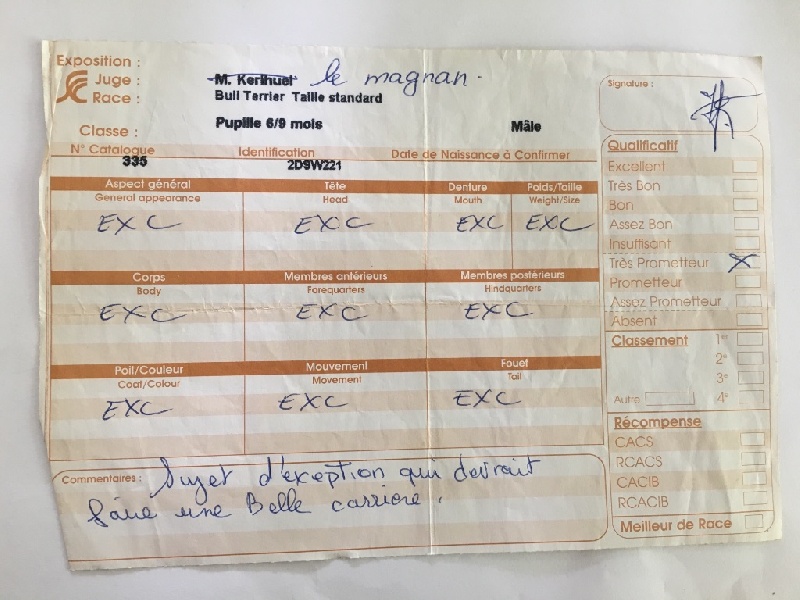 Exposition :
Juge : M. Kerihuel le magnan.
Race : Bull Terrier Taille standard
Signature :
Classe : Pupille 6/9 mois Mâle
N° Catalogue Identification Date de Naissance à Confirmer
335 2DSW221
Aspect général Tête Denture Poids/Taille
General appearance Head Mouth Weight/Size
EXC EXC EXC EXC
Corps Membres antérieurs Membres postérieurs
Body Forequarters Hindquarters
EXC EXC EXC
Poil/Couleur Mouvement Fouet
Coat/Colour Movement Tail
EXC EXC EXC
Commentaires : Sujet d'exeption qui devrait
faire une Belle carriere.
Qualificatif
Excellent
Très Bon
Bon
Assez Bon
Insuffisant
Très Prometteur X
Prometteur
Assez Prometteur
Absent
Classement 1er
2e
3e
Autre 4e
Récompense
CACS
RCACS
CACIB
RCACIB
Meilleur de Race